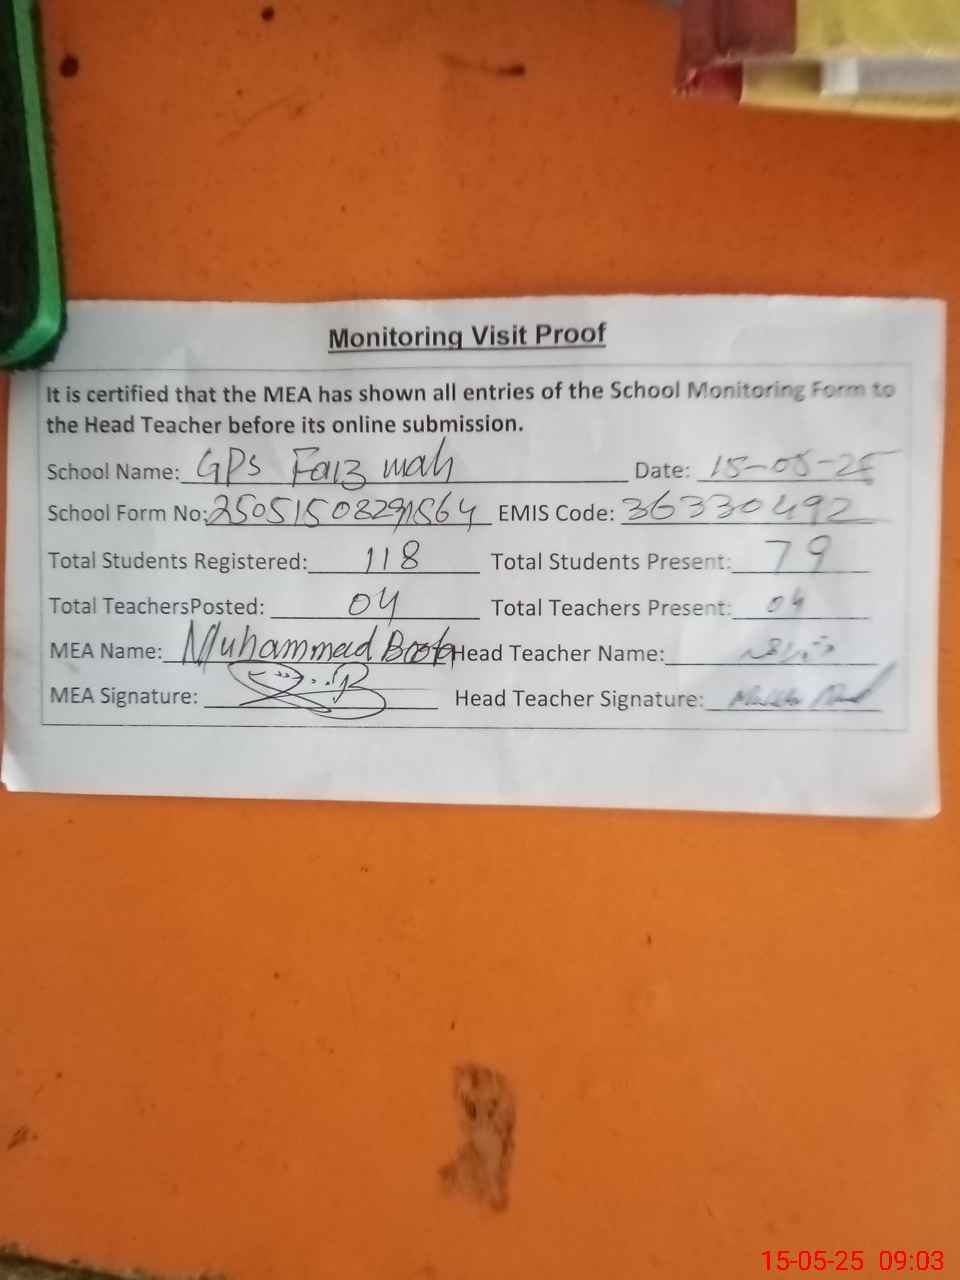 Monitoring Visit Proof
It is certified that the MEA has shown all entries of the School Monitoring Form to
the Head Teacher before its online submission.
School Name: GPS Faiz wah Date: 15-05-25
School Form No: EMIS Code: 36330492
Total Students Registered: 118 Total Students Present: 79
Total TeachersPosted: 04 Total Teachers Present: 04
MEA Name: Muhammad Head Teacher Name:
MEA Signature: Head Teacher Signature:
15-05-25 09:03